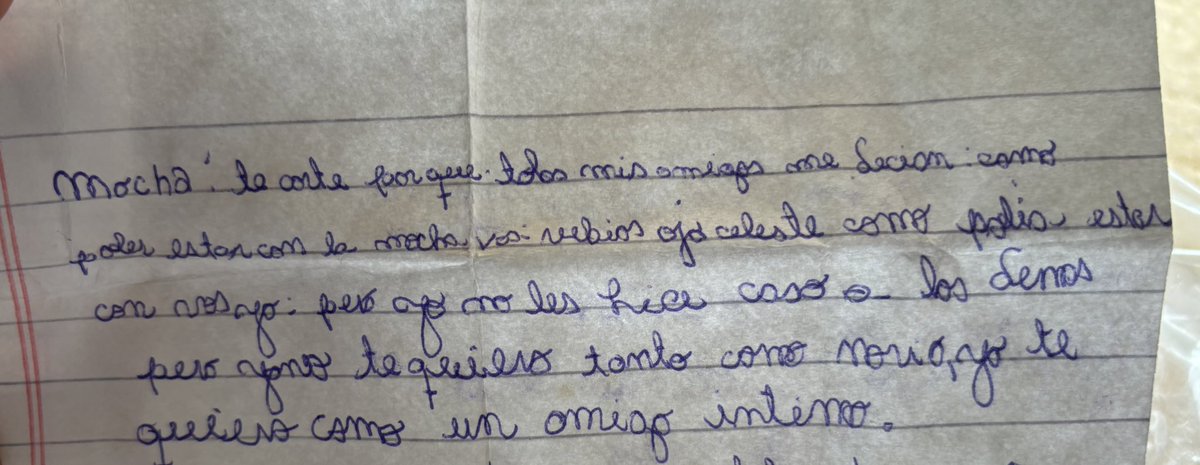 Mocha. te corte porque. todos mis amigos me decian. como
poder estar con la mocha vos. rubio ojo celeste como podis estar
con vos yo. pero yo no les hice caso a los demas
pero yo no te quiero tanto como novio, yo te
quiero como un amigo intimo.